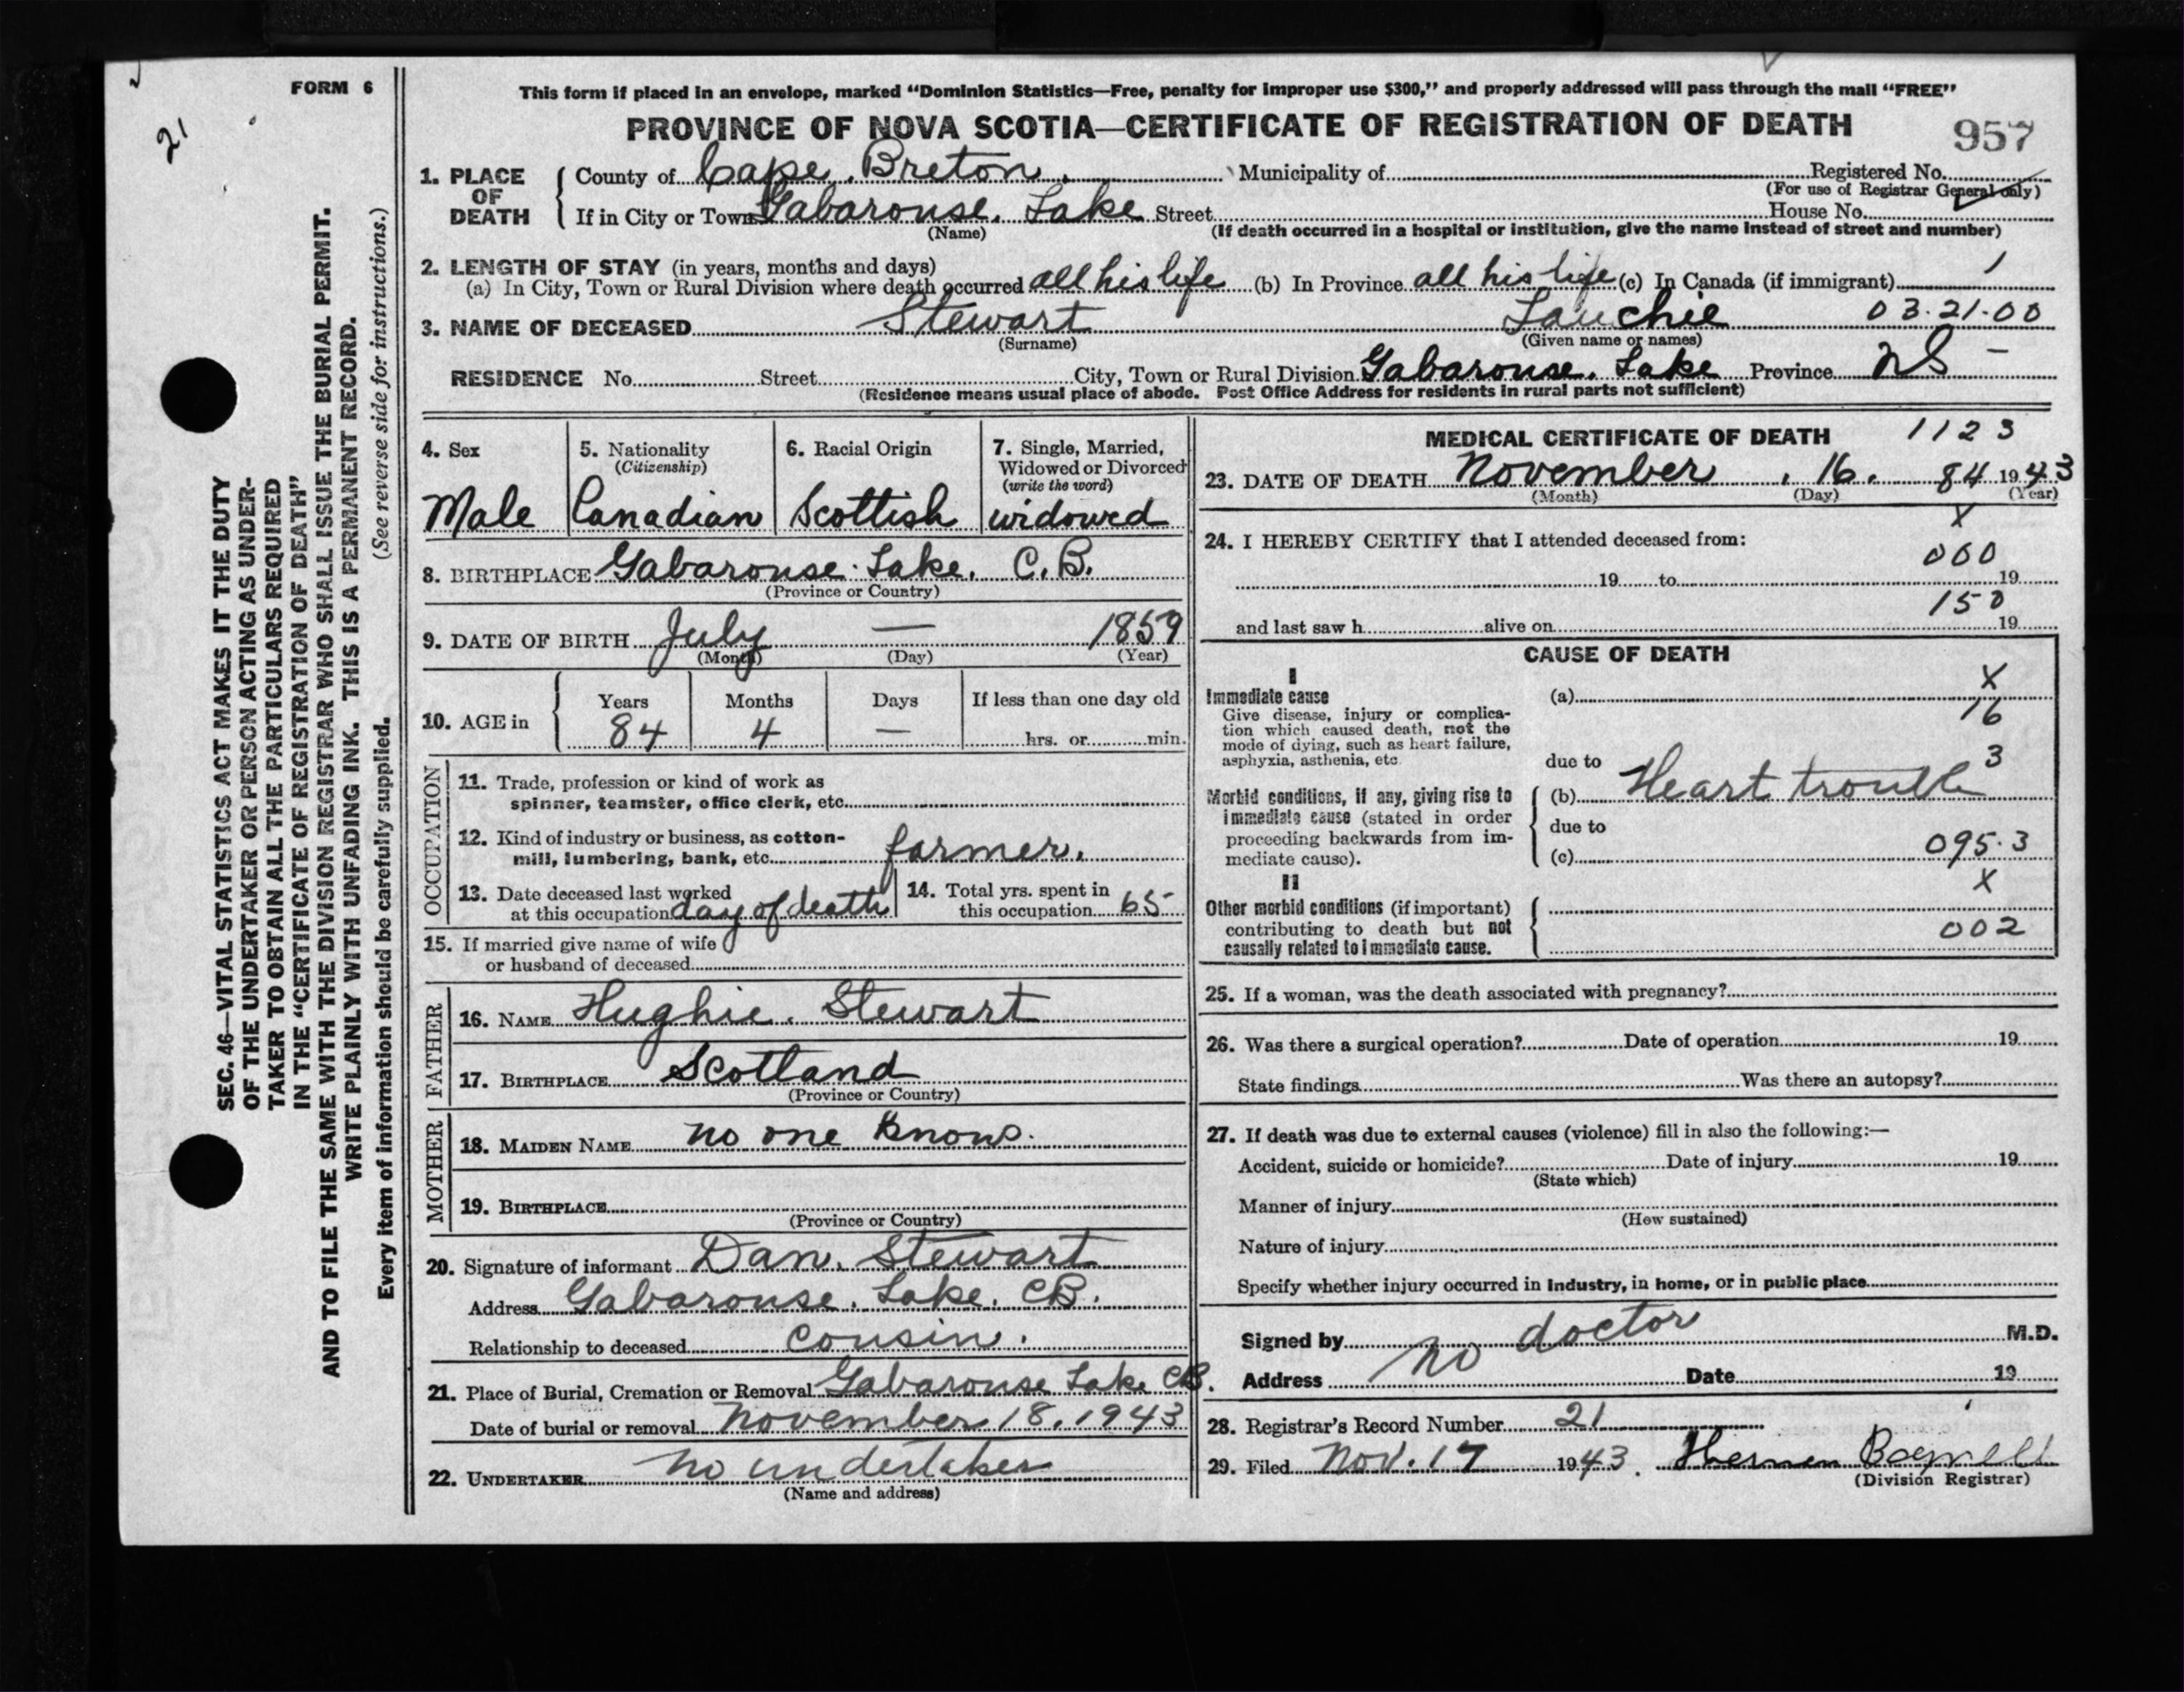 FORM 6
21
This form if placed in an envelope, marked “Dominion Statistics—Free, penalty for improper use $300,” and properly addressed will pass through the mail “FREE”
PROVINCE OF NOVA SCOTIA—CERTIFICATE OF REGISTRATION OF DEATH
957
SEC. 46—VITAL STATISTICS ACT MAKES IT THE DUTY
OF THE UNDERTAKER OR PERSON ACTING AS UNDER-
TAKER TO OBTAIN ALL THE PARTICULARS REQUIRED
IN THE “CERTIFICATE OF REGISTRATION OF DEATH”
AND TO FILE THE SAME WITH THE DIVISION REGISTRAR WHO SHALL ISSUE THE BURIAL PERMIT.
WRITE PLAINLY WITH UNFADING INK. THIS IS A PERMANENT RECORD.
Every item of information should be carefully supplied. (See reverse side for instructions.)
1. PLACE OF DEATH
County of Cape Breton Municipality of Registered No.
(For use of Registrar General only)
If in City or Town Gabarouse Lake Street House No.
(Name) (If death occurred in a hospital or institution, give the name instead of street and number)
2. LENGTH OF STAY (in years, months and days)
(a) In City, Town or Rural Division where death occurred all his life (b) In Province all his life (c) In Canada (if immigrant) 1
3. NAME OF DECEASED Stewart Lauchie 03.21.00
(Surname) (Given name or names)
RESIDENCE No. Street City, Town or Rural Division Gabarouse Lake Province NS —
(Residence means usual place of abode. Post Office Address for residents in rural parts not sufficient)
4. Sex
Male
5. Nationality
(Citizenship)
Canadian
6. Racial Origin
Scottish
7. Single, Married,
Widowed or Divorced
(write the word)
widowed
8. BIRTHPLACE Gabarouse Lake, C.B.
(Province or Country)
9. DATE OF BIRTH July — 1859
(Month) (Day) (Year)
10. AGE in
Years Months Days If less than one day old
84 4 — hrs. or min.
OCCUPATION
11. Trade, profession or kind of work as
spinner, teamster, office clerk, etc.
12. Kind of industry or business, as cotton-
mill, lumbering, bank, etc. farmer.
13. Date deceased last worked
at this occupation day of death
14. Total yrs. spent in
this occupation 65
15. If married give name of wife
or husband of deceased
FATHER
16. NAME Hughie Stewart
17. BIRTHPLACE Scotland
(Province or Country)
MOTHER
18. MAIDEN NAME no one knows.
19. BIRTHPLACE
(Province or Country)
20. Signature of informant Dan. Stewart
Address Gabarouse Lake, CB.
Relationship to deceased cousin.
21. Place of Burial, Cremation or Removal Gabarouse Lake CB.
Date of burial or removal November 18, 1943
22. UNDERTAKER no undertaker
(Name and address)
MEDICAL CERTIFICATE OF DEATH 1123
23. DATE OF DEATH November 16. 84 1943
(Month) (Day) (Year)
X
24. I HEREBY CERTIFY that I attended deceased from:
000
19 to 19
150
and last saw h alive on 19
CAUSE OF DEATH
I
Immediate cause (a) X
Give disease, injury or complica-
tion which caused death, not the
mode of dying, such as heart failure,
asphyxia, asthenia, etc.
16
due to 3
Morbid conditions, if any, giving rise to
immediate cause (stated in order
proceeding backwards from im-
mediate cause).
(b) Heart trouble
due to
(c) 095.3
II
X
Other morbid conditions (if important)
contributing to death but not
causally related to immediate cause.
002
25. If a woman, was the death associated with pregnancy?
26. Was there a surgical operation? Date of operation 19
State findings Was there an autopsy?
27. If death was due to external causes (violence) fill in also the following:—
Accident, suicide or homicide? Date of injury 19
(State which)
Manner of injury
(How sustained)
Nature of injury
Specify whether injury occurred in industry, in home, or in public place
Signed by no doctor M.D.
Address Date 19
28. Registrar's Record Number 21
29. Filed Nov. 17 1943.
(Division Registrar)